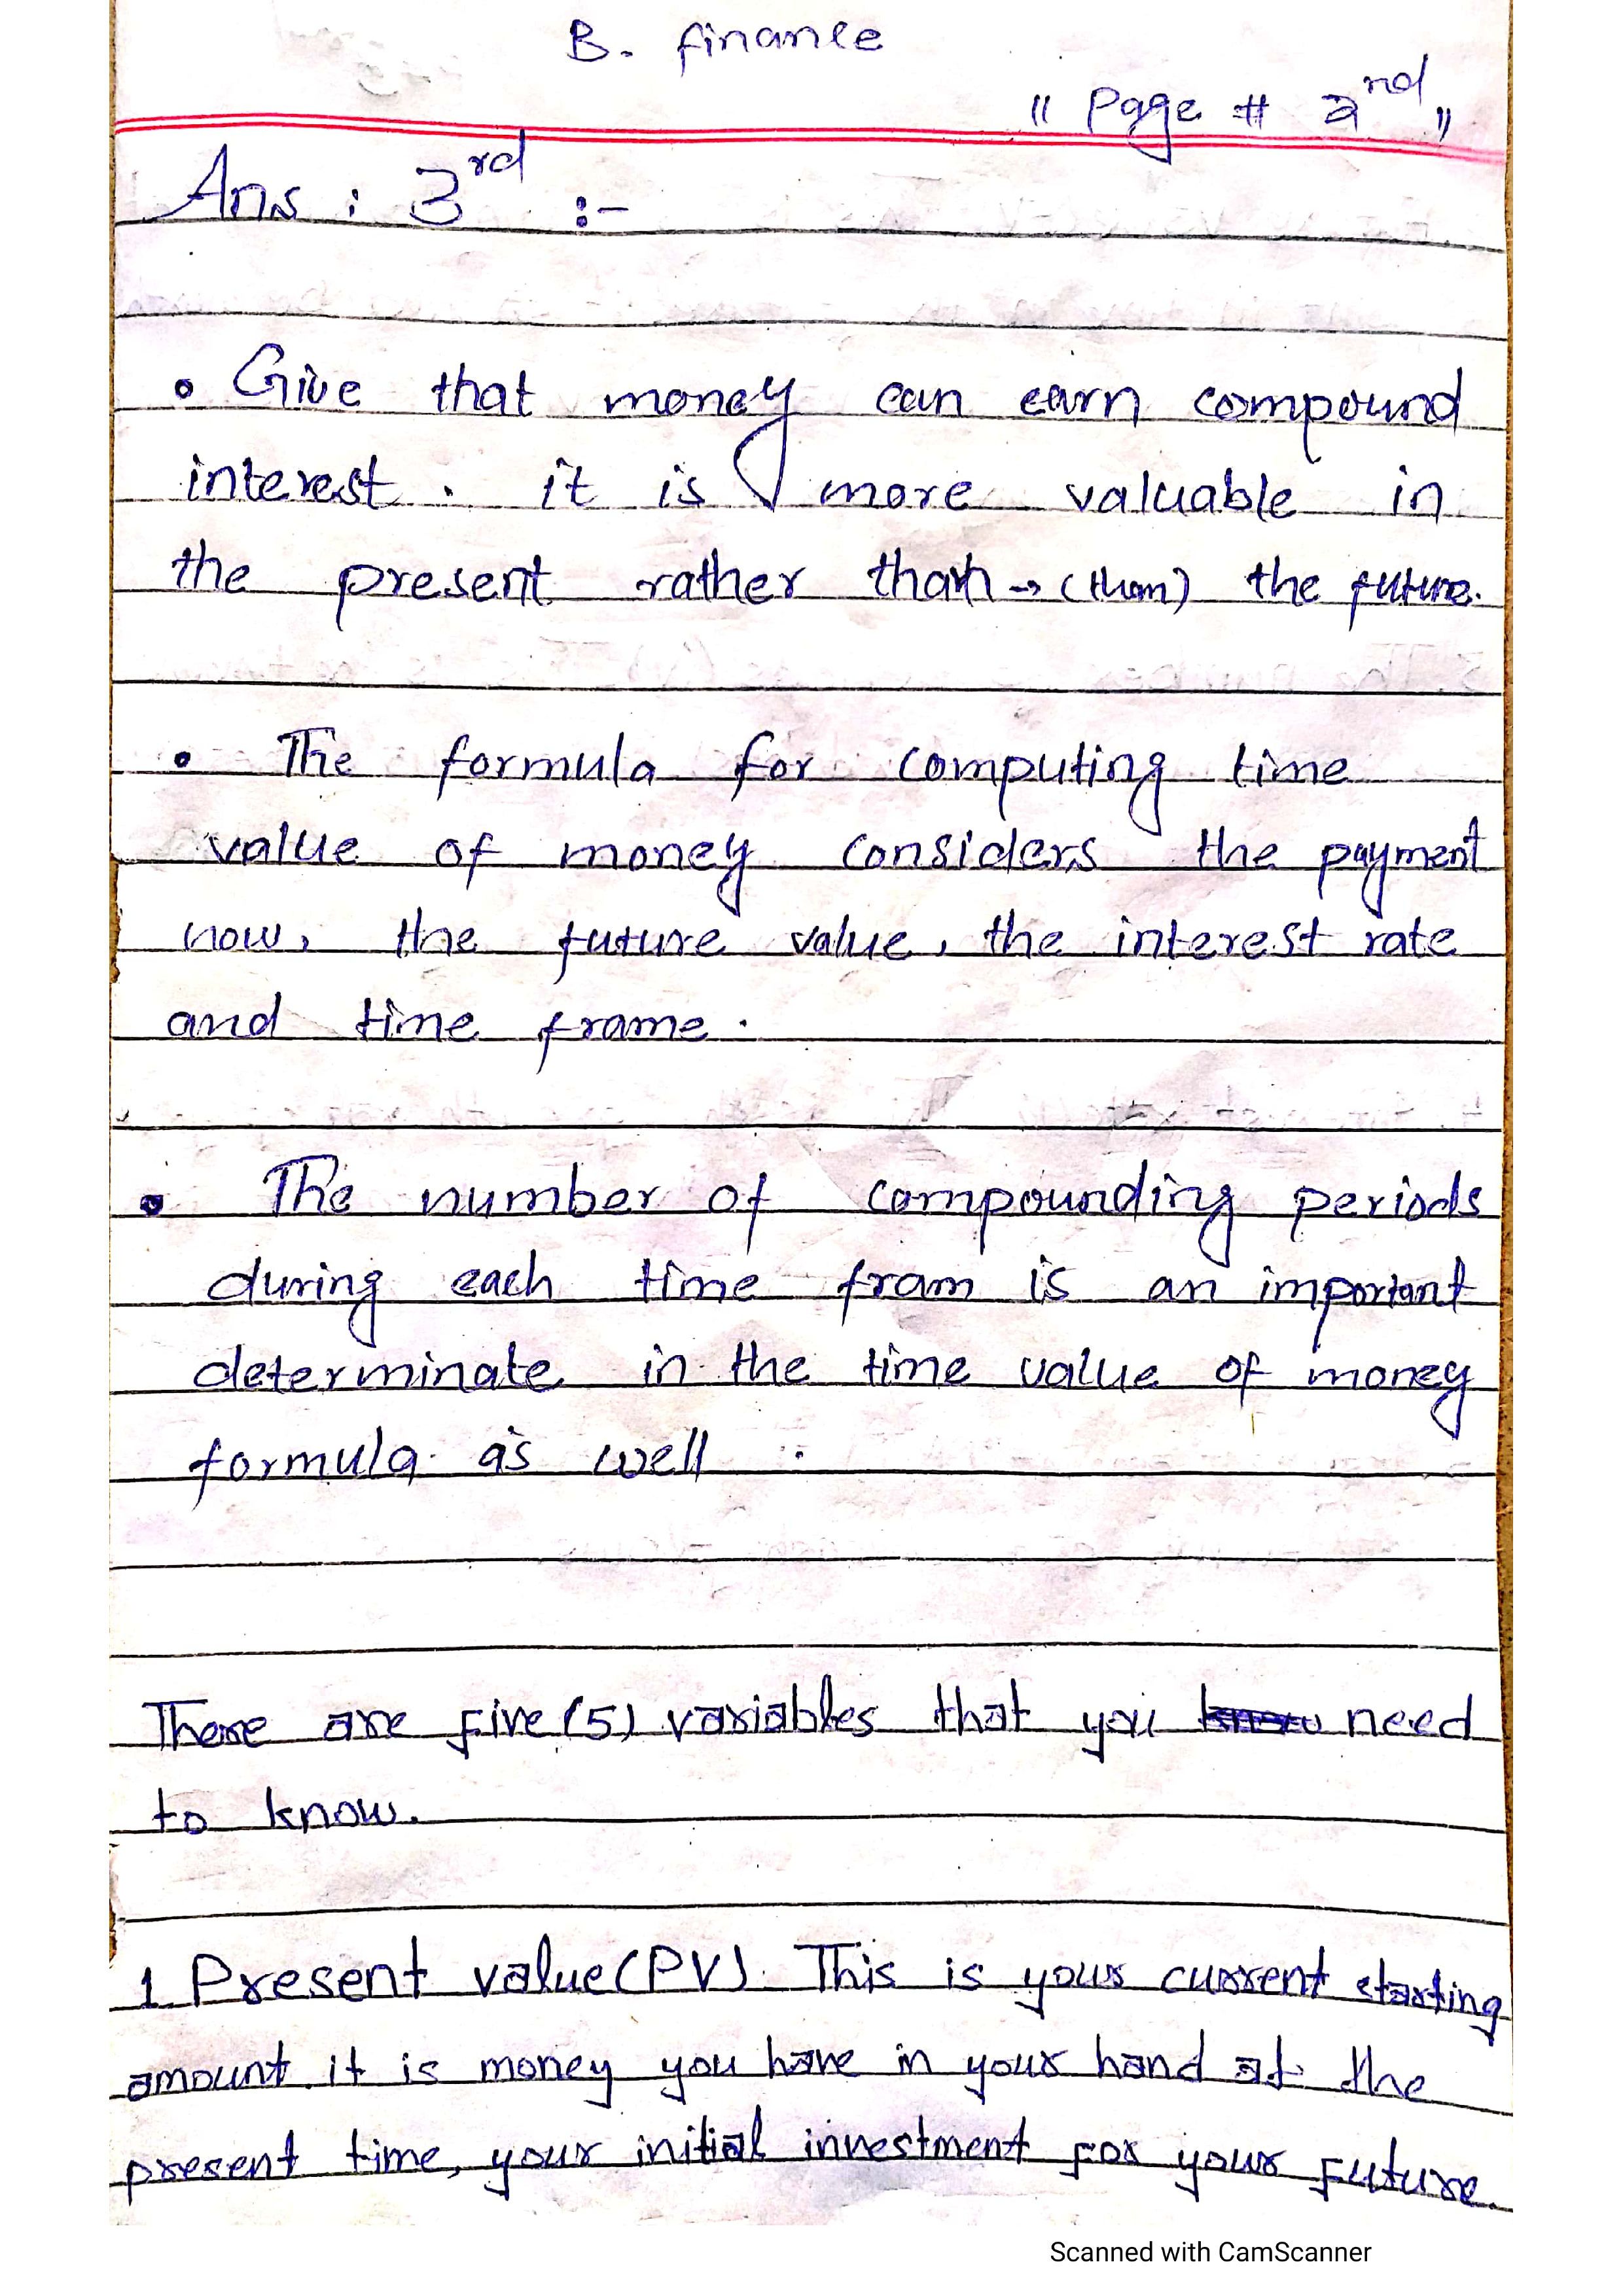 B. finance
" Page # 2nd "
Ans : 3rd :-
• Give that money can earn compound
interest. it is more valuable in
the present rather than → (than) the future.
• The formula for computing time
value of money considers the payment
now, the future value, the interest rate
and time frame.
• The number of compounding periods
during each time fram is an important
determinate in the time value of money
formula as well.
There are five (5) variables that you need
to know.
1 Present value (PV). This is your current starting
amount. it is money you have in your hand at the
present time, your initial investment for your future.
Scanned with CamScanner